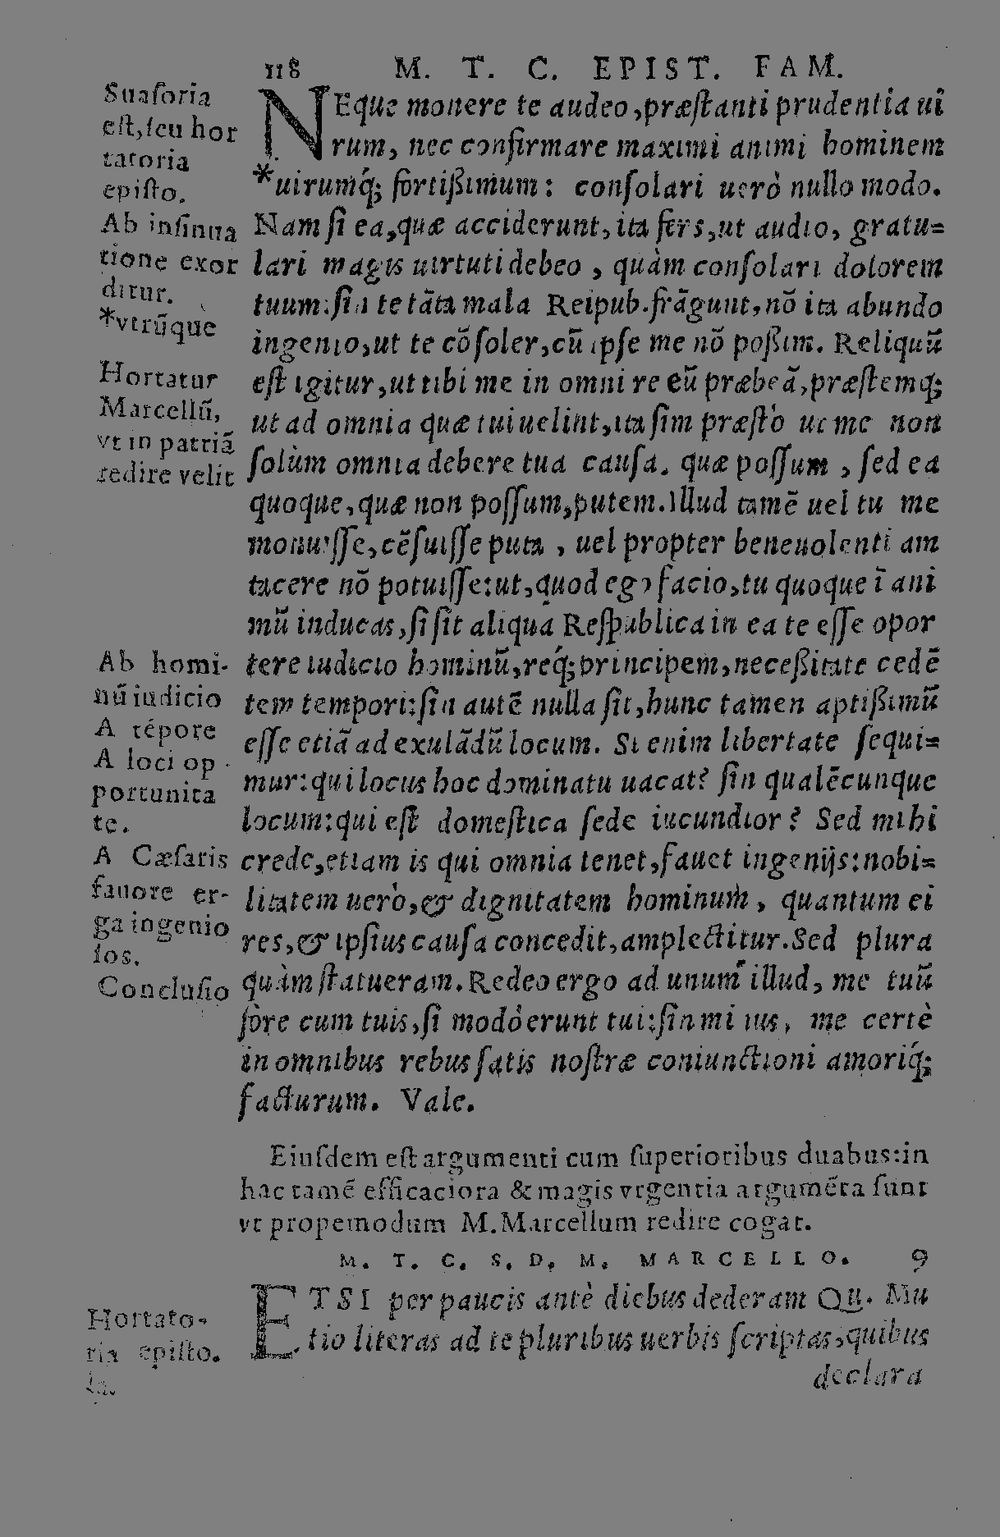 118 M. T. C. EPIST. FAM.
Suasoria
est, seu hor
tatoria
episto.
Ab insinua
tione exor
ditur.
*vtrũque
Hortatur
Marcellũ,
vt in patriã
redire velit
NEque monere te audeo, præstanti prudentia ui
rum, nec confirmare maximi animi hominem
*uirumq́; fortißimum: consolari uerò nullo modo.
Nam si ea, quæ acciderunt, ita fers, ut audio, gratu=
lari magis uirtuti debeo, quàm consolari dolorem
tuum: sin te tãta mala Reipub. frãgunt, nõ ita abundo
ingenio, ut te cõsoler, cũ ipse me nõ poßim. Reliquũ
est igitur, ut tibi me in omni re eũ præbeã, præstemq;
ut ad omnia quæ tui uelint, ita sim præstò ut me non
solùm omnia debere tua causa. quæ possum, sed ea
quoque, quæ non possum, putem. Illud tamẽ uel tu me
monuisse, cẽsuisse puta, uel propter beneuolenti am
tacere nõ potuisse: ut, quod ego facio, tu quoque ĩ ani
mũ inducas, si sit aliqua Respublica in ea te esse opor
tere iudicio hominũ, req́; principem, neceßitate cedẽ
tem tempori: sin autẽ nulla sit, hunc tamen aptißimũ
esse etiã ad exulãdũ locum. Si enim libertate sequi=
mur: qui locus hoc dominatu uacat? sin qualẽcunque
locum: qui est domestica sede iucundior? Sed mihi
crede, etiam is qui omnia tenet, fauet ingenijs: nobi=
litatem uerò, & dignitatem hominum, quantum ei
res, & ipsius causa concedit, amplectitur. Sed plura
quàm statueram. Redeo ergo ad unum illud, me tuũ
fore cum tuis, si modò erunt tui: sin mi ius, me certè
in omnibus rebus satis nostræ coniunctioni amoriq́;
facturum. Vale.
Ab homi-
nũ iudicio
A tẽpore
A loci op
portunita
te.
A Cæsaris
fauore er-
ga ingenio
sos.
Conclusio
Eiusdem est argumenti cum superioribus duabus: in
hac tamẽ efficaciora & magis vrgentia argumẽta sunt
vt propemodum M. Marcellum redire cogat.
M. T. C. S. D. M. MARCELLO. 9
Hortato-
ria episto.
la.
ETSI per paucis antè diebus dederam Qu. Mu
tio literas ad te pluribus uerbis scriptas, quibus
declara